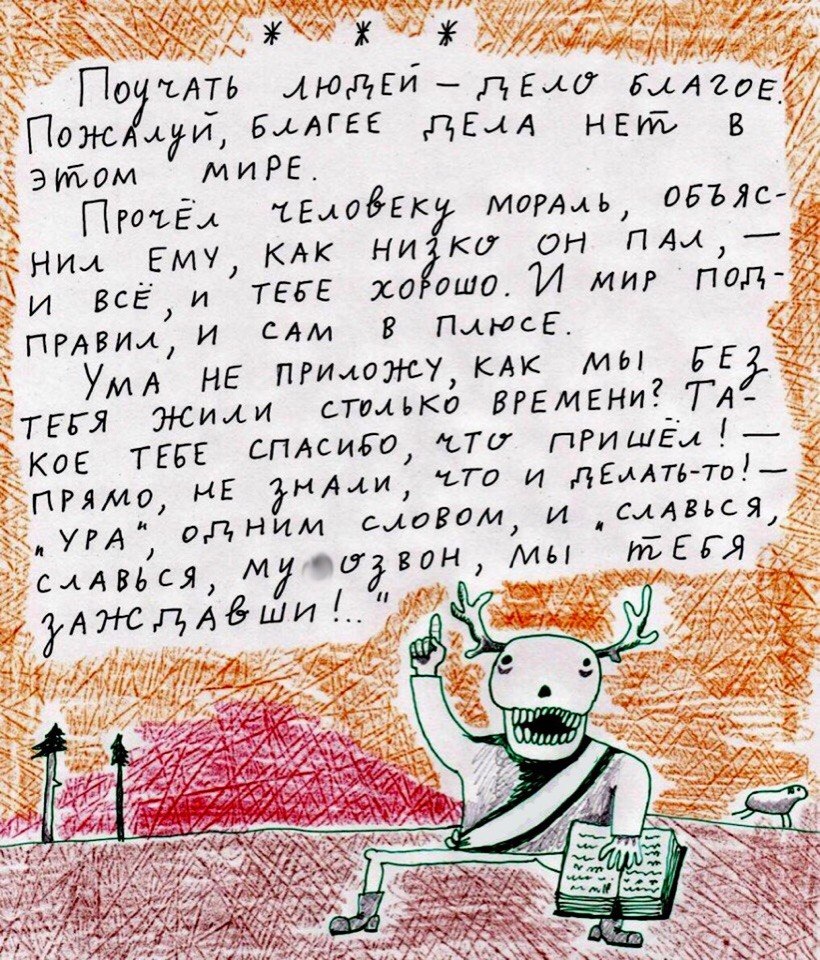 * * *
Поучать людей — дело благое.
Пожалуй, благее дела нет в
этом мире.
Прочёл человеку мораль, объяс-
нил ему, как низко он пал, —
и всё, и тебе хорошо. И мир под-
правил, и сам в плюсе.
Ума не приложу, как мы без
тебя жили столько времени? Та-
кое тебе спасибо, что пришёл! —
прямо, не знали, что и делать-то! —
„ура“, одним словом, и „славься,
славься, му озвон, мы тебя
заждавши!..“